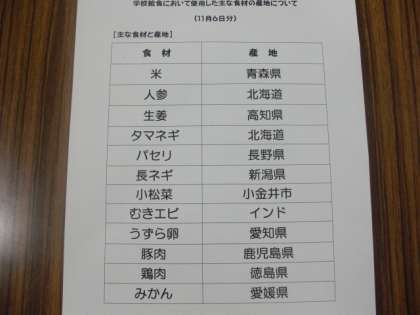 学校給食において使用した主な食材の産地について
(11月6日分)
[主な食材と産地]
食材 産地
米 青森県
人参 北海道
生姜 高知県
タマネギ 北海道
パセリ 長野県
長ネギ 新潟県
小松菜 小金井市
むきエビ インド
うずら卵 愛知県
豚肉 鹿児島県
鶏肉 徳島県
みかん 愛媛県